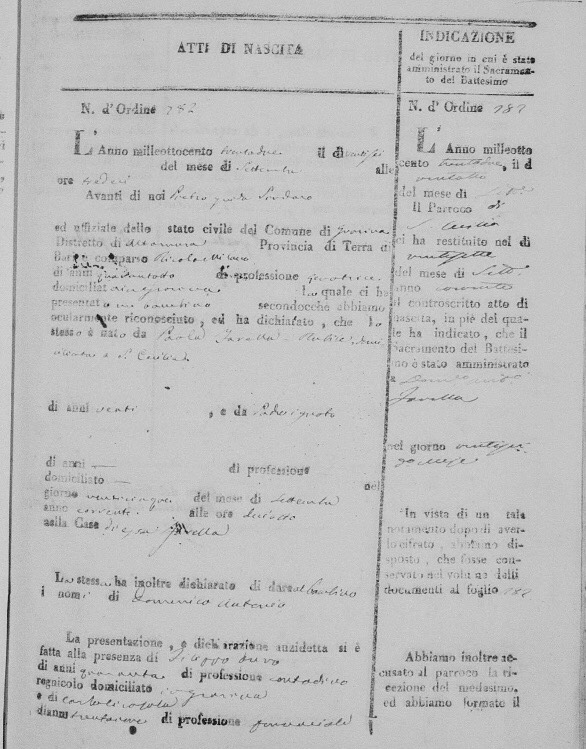 ATTI DI NASCITA
N. d'Ordine 182
L'Anno milleottocento trentadue il dì ventisei
del mese di Settembre alle
ore tredici
Avanti di noi Pietro
ed uffiziale dello stato civile del Comune di Gravina
Distretto di Altamura Provincia di Terra di
Bari è comparso Nicola
di anni quarantotto di professione
domiciliat in Gravina la quale ci ha
presentato un bambino secondocchè abbiamo
ocularmente riconosciuto, ed ha dichiarato, che lo
stesso è nato da Paola Favella Nubile
a S. Cecilia
di anni venti , e da Padre ignoto
di anni — di professione
domiciliato — nel
giorno venticinque del mese di Settembre
anno corrente alle ore diciotto
nella Casa di essa Favella
La stessa ha inoltre dichiarato di dare al bambino
i nomi di Domenico Antonio
La presentazione, e dichiarazione anzidetta si è
fatta alla presenza di
di anni quaranta di professione contadino
regnicolo domiciliato in Gravina
e di
di anni trentanove di professione
INDICAZIONE
del giorno in cui è stato
amministrato il Sacramen-
to del Battesimo
N. d'Ordine 182
L'Anno milleotto
cento trentadue, il d
ventotto
del mese di Sett
Il Parroco di
S. Cecilia
ci ha restituito nel dì
ventisette
del mese di Sett
anno corrente
il controscritto atto di
nascita, in piè del qua-
le ha indicato, che il
Sacramento del Battesi-
mo è stato amministrato
a Domenico
Favella
nel giorno
In vista di un tale
notamento dopo di aver-
lo cifrato, abbiamo di-
sposto, che fosse con-
servato nel volume dalli
documenti al foglio 182
Abbiamo inoltre ac-
cusato al parroco la ri-
cezione del medesimo,
ed abbiamo formato il